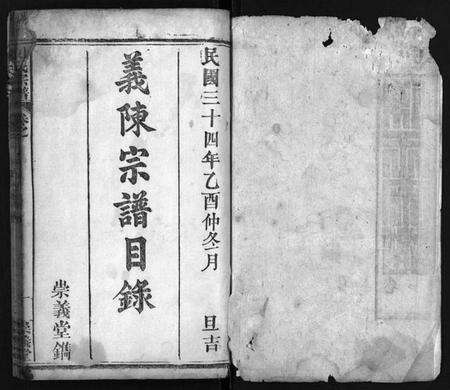 民國三十四年乙酉仲冬月 旦吉
義陳宗譜目錄
崇義堂鐫